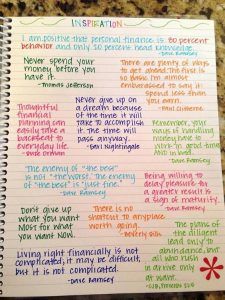 INSPIRATION
I am positive that personal finance is 80 percent
behavior and only 20 percent head knowledge.
-Dave Ramsey
Never spend your
money before you
have it.
-Thomas Jefferson
There are plenty of ways
to get ahead. The first is
so basic I'm almost
embarrassed to say it:
spend less than
you earn.
-Paul Clitheroe
Thoughtful
financial
planning can
easily take a
backseat to
everyday life.
-Suze Orman
Never give up on
a dream because
of the time it will
take to accomplish
it. The time will
pass anyway.
-Earl Nightingale
Remember, your
ways of handling
money have to
work in good times
and in bad.
-Dave Ramsey
The enemy of "the best"
is not "the worst." The enemy
of "the best" is "just fine."
-Dave Ramsey
Being willing to
delay pleasure for
a greater result is
a sign of maturity.
-Dave Ramsey
Don't give up
what you want
most for what
you want now.
There is no
shortcut to anyplace
worth going.
-Beverly Sills
The plans of
the diligent
lead only to
abundance, but
all who rush
in arrive only
at want.
Living right financially is not
complicated; it may be difficult,
but it is not complicated.
-Dave Ramsey